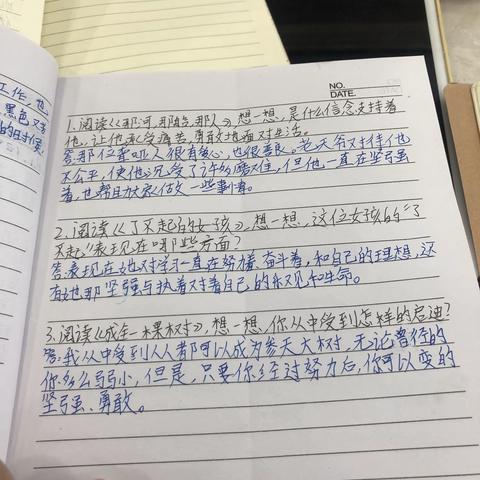 工作,也
黑色又
的时候,
NO.
DATE.
1.阅读《那河,那哑,那人》,想一想,是什么信念支持着
他,让他承受痛苦,勇敢地面对生活。
答:那位聋哑人很有爱心,也很善良。老天爷对待他
不公平,使他沉受了许多磨难,但他一直在坚强
着,也帮助大家做一些事情。
2.阅读《了不起的女孩》,想一想,这位女孩的"了
不起"表现在哪些方面?
答:表现在她对学习一直在努力着,奋斗着,和自己的理想,还
有她那坚强与执着对着自己的乐观和生命。
3.阅读《成全一棵树》,想一想,你从中受到怎样的启迪?
答:我从中受到人人都可以成为参天大树,无论曾经的
你多么弱小,但是,只要你经过努力后,你可以变的
坚强、勇敢。